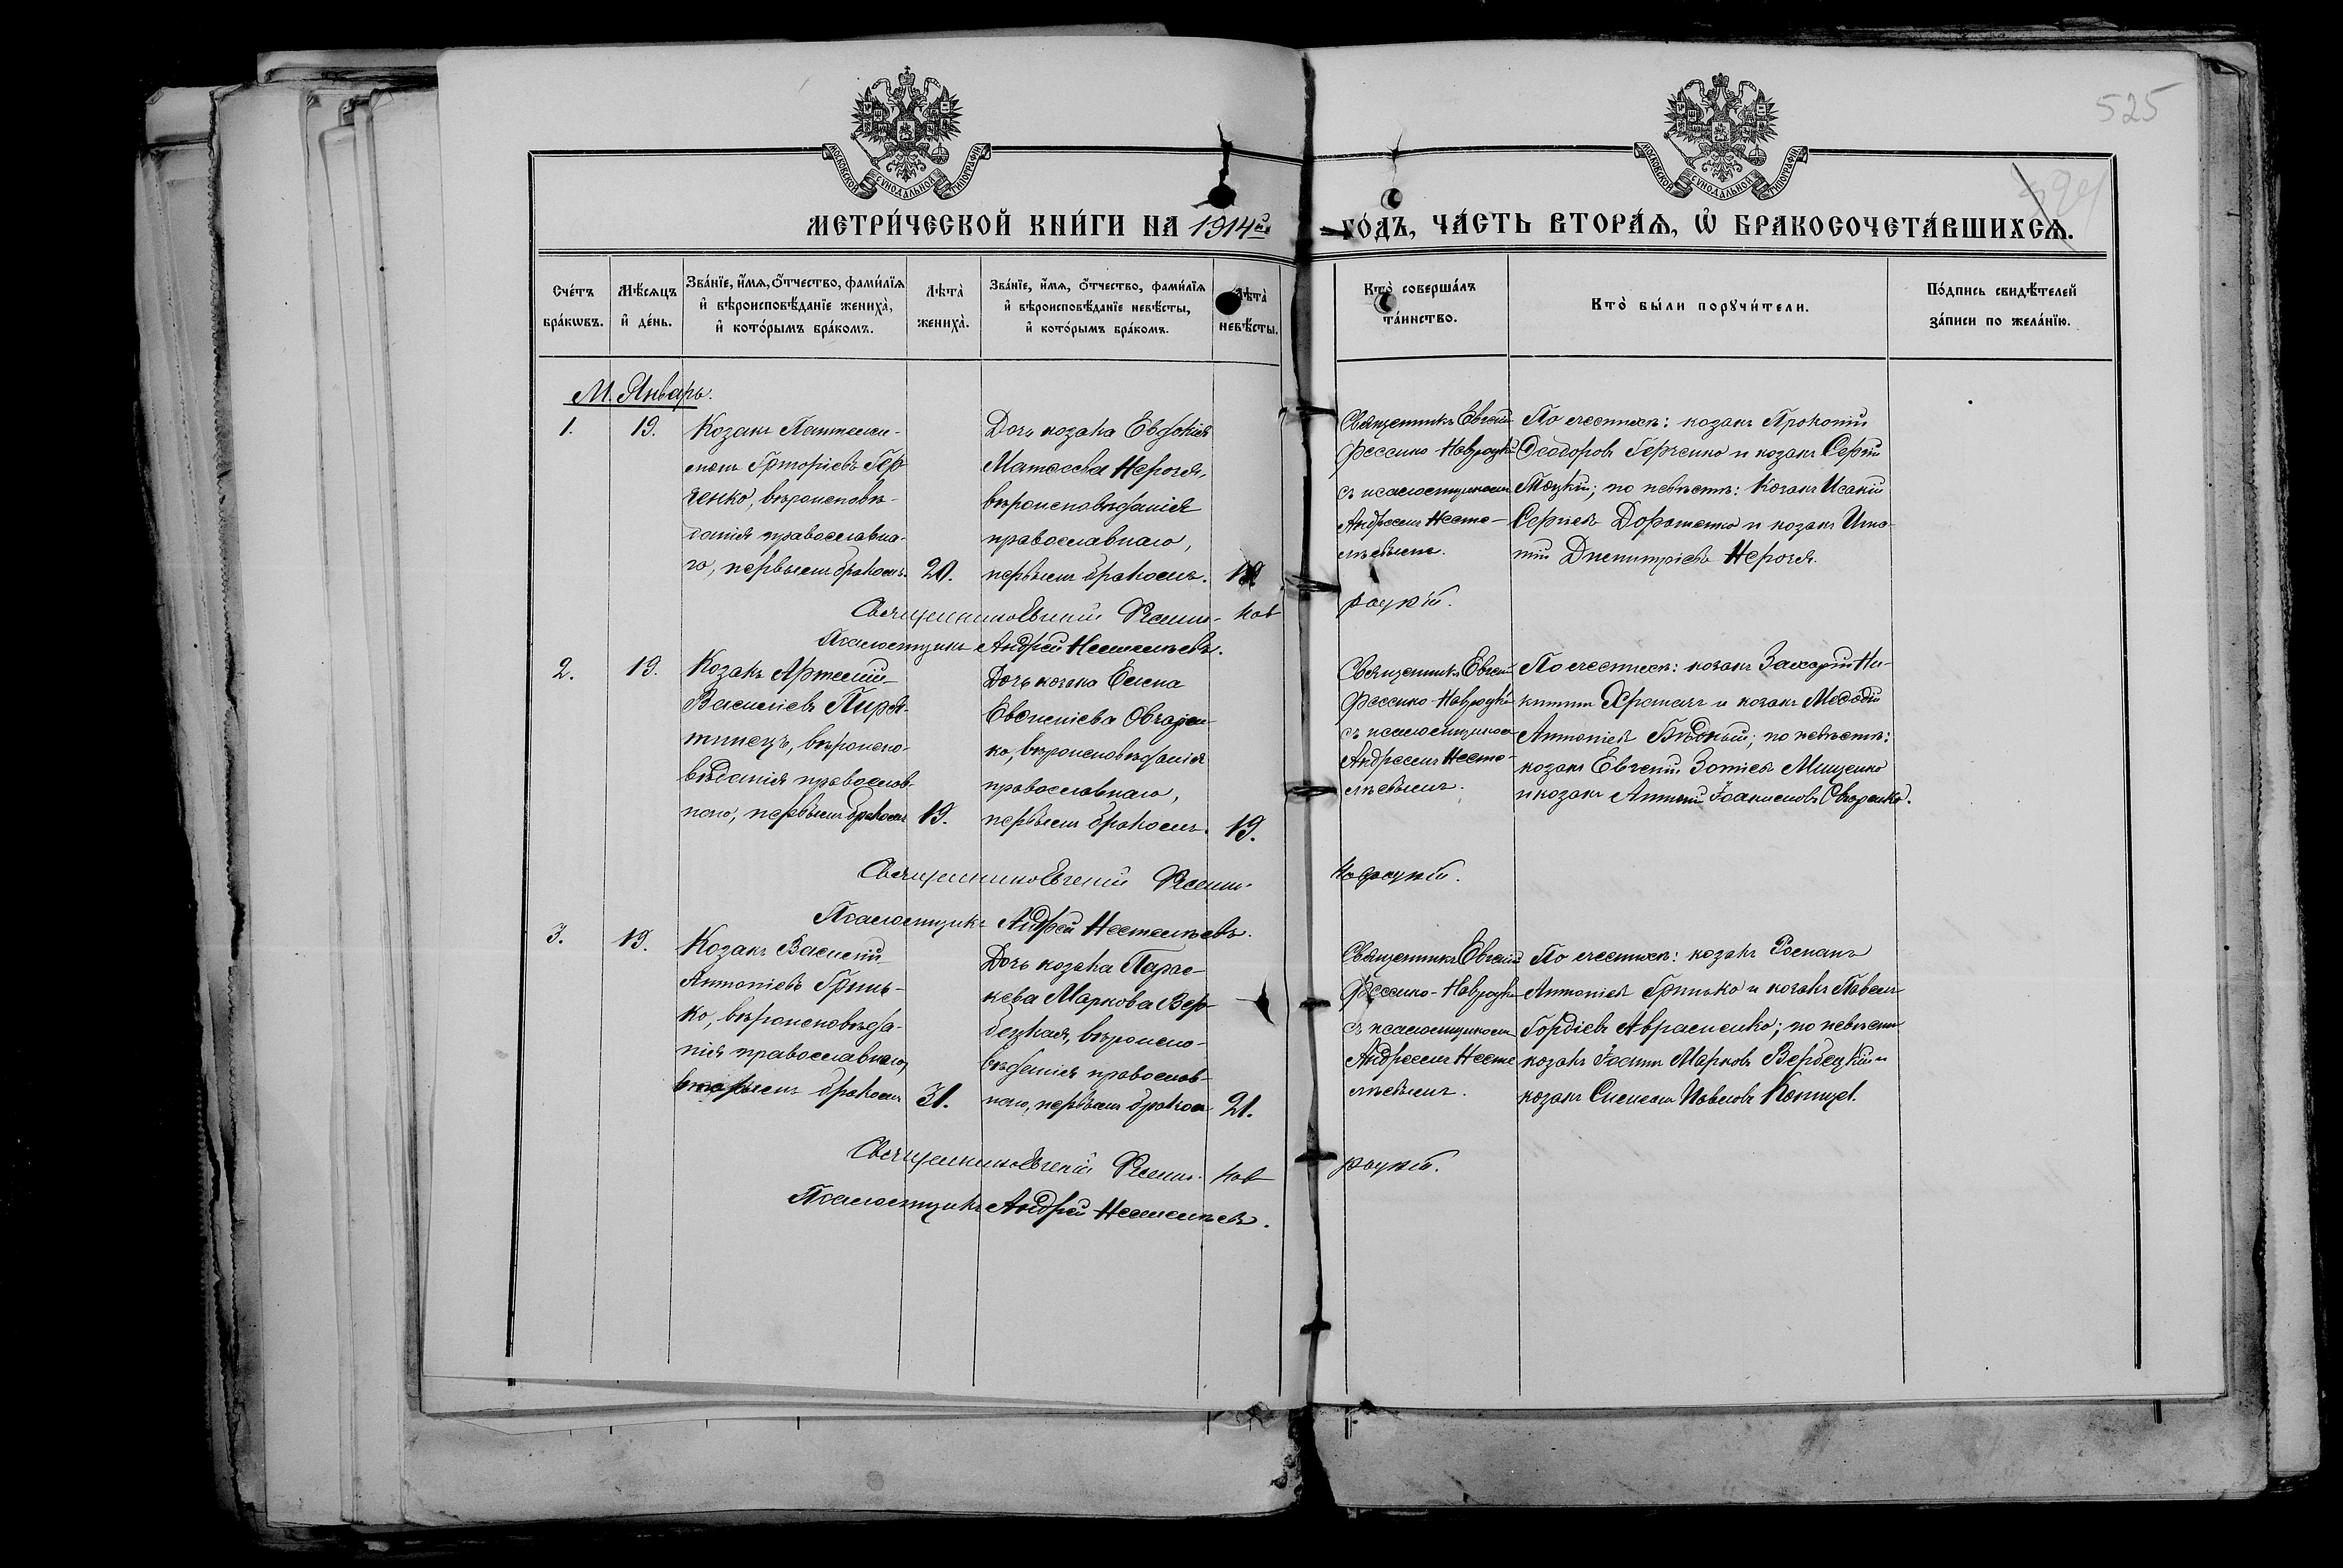 525
МОСКОВСКОЙ СѴНОДАЛЬНОЙ ТИПОГРАФІИ
МОСКОВСКОЙ СѴНОДАЛЬНОЙ ТИПОГРАФІИ
МЕТРИ́ЧЕСКОЙ КНИ́ГИ НА 1914й
ГО́ДЪ, ЧА́СТЬ ВТОРА́Ѧ, Ѡ҆ БРАКОСОЧЕТА́ВШИХСѦ.
Сче́тъ бра́кѡвъ.
Мѣ́сѧцъ и҆ де́нь.
Зва́нїе, и҆́мѧ, ѻ҆́тчество, фами́лїѧ
и҆ вѣроисповѣ́данїе жениха̀,
и҆ кото́рымъ бра́комъ.
Лѣта̀ жениха̀.
Зва́нїе, и҆́мѧ, ѻ҆́тчество, фами́лїѧ
и҆ вѣроисповѣ́данїе невѣ́сты,
и҆ кото́рымъ бра́комъ.
Лѣта̀ невѣ́сты.
Кто̀ соверша́лъ
та́инство.
Кто̀ бы́ли порꙋчи́тели.
По́дпись свидѣ́телей
за́писи по жела́нїю.
М. Январь.
1.
19.
Козакъ Пантелеи-
монъ Григоріевъ Гер
ченко, вѣроисповѣ-
данія православна-
го, первымъ бракомъ.
20.
Дочь козака Евдокія
Матѳеева Нерогля,
вѣроисповѣданія
православнаго,
первымъ бракомъ.
Священникъ Евгеній
Фесенко-Навроцкій
съ псаломщикомъ
Андреемъ Несте-
лѣевымъ.
По женихѣ: козакъ Прокопій
Ѳеодоровъ Герченко и козакъ Сергій
по невѣстѣ: Козакъ Исакій
Сергіевъ Дорошенко и козакъ Игна-
тій Димитріевъ Нерогля.
Священникъ Евгеній Фесенко-Нав
роцкій.
Псаломщикъ Андрей Нестелѣевъ.
2.
19.
Козакъ Артемій
Василіевъ Пиря-
тинецъ, вѣроиспо-
вѣданія православ-
наго, первымъ бракомъ
19.
Дочь козака Елена
Евѳиміева Овчарен-
ко, вѣроисповѣданія
православнаго,
первымъ бракомъ.
19.
Священникъ Евгеній
Фесенко-Навроцкій
съ псаломщикомъ
Андреемъ Несте-
лѣевымъ.
По женихѣ: козакъ Захарій Ни-
китинъ и козакъ Меѳодій
Антоніевъ Бѣдный; по невѣстѣ:
козакъ Евгеній Зотіевъ Мищенко
и козакъ Іоакимовъ Овчаренко.
Священникъ Евгеній Фесенко-
Навроцкій.
Псаломщикъ Андрей Нестелѣевъ.
3.
19.
Козакъ Василій
Антоніевъ Гринь-
ко, вѣроисповѣда-
нія православнаго,
вторымъ бракомъ
31.
Дочь козака Парас-
кева Маркова Вер
бецкая, вѣроиспо-
вѣданія православ-
наго, первымъ бракомъ
21.
Священникъ Евгеній
Фесенко-Навроцкій
съ псаломщикомъ
Андреемъ Несте
лѣевымъ.
По женихѣ: козакъ Романъ
Антоніевъ Гринько и козакъ Павелъ
Гордіевъ Авраменко; по невѣстѣ
козакъ Іоаннъ Марковъ Вербецкій и
козакъ Симеонъ Павловъ
Священникъ Евгеній Фесенко-Нав
роцкій.
Псаломщикъ Андрей Нестелѣевъ.